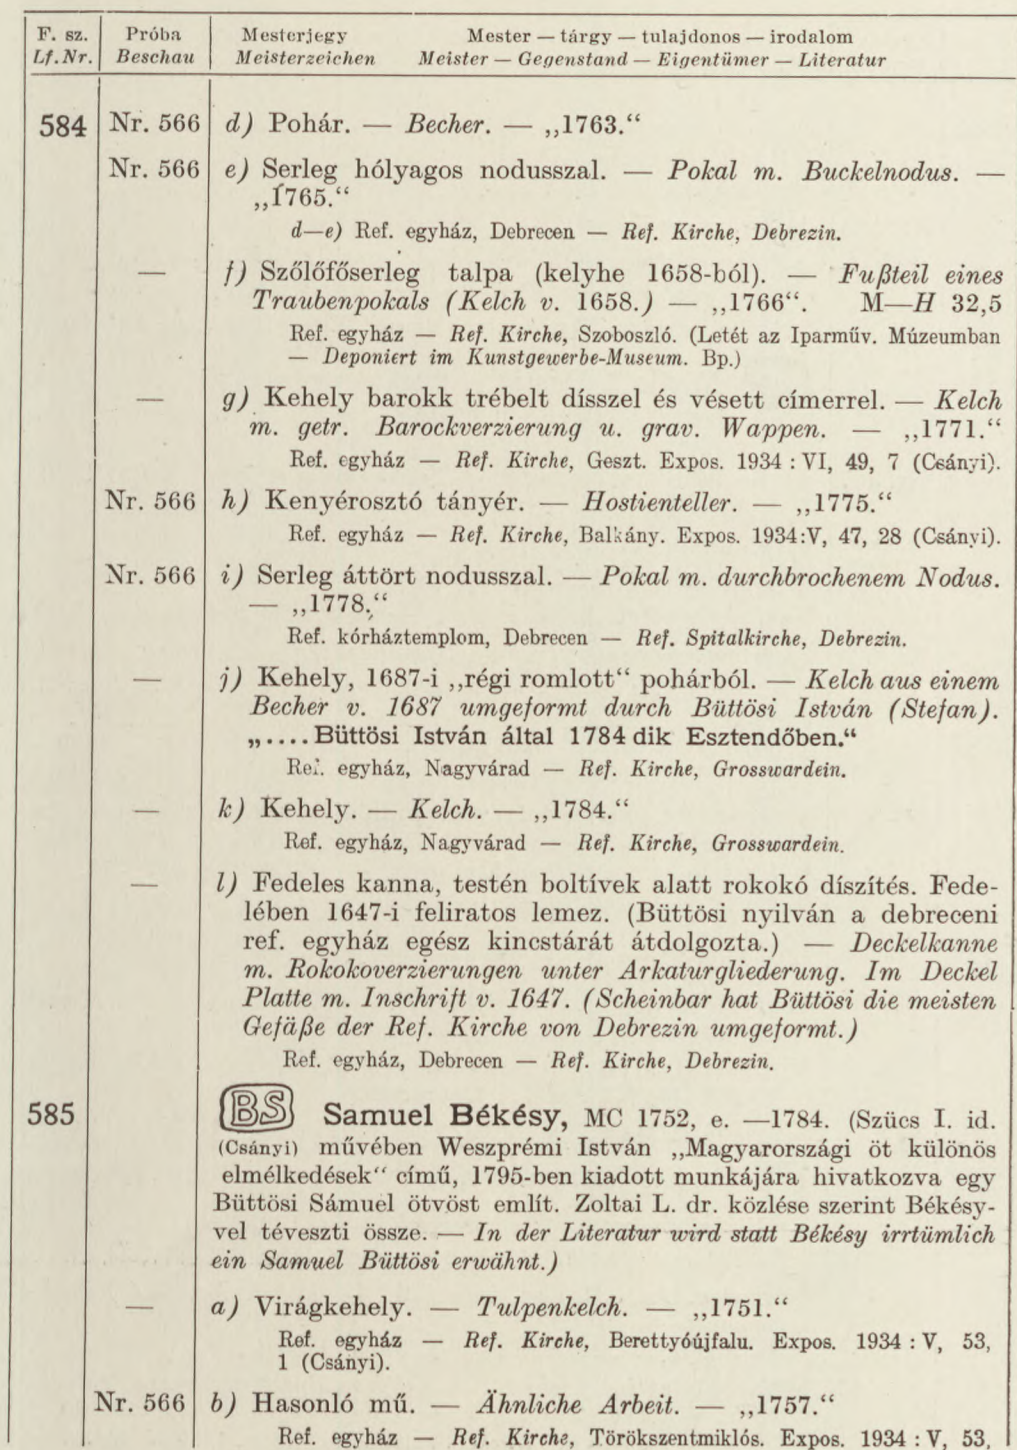 F. sz. Próba Mesterjegy Mester — tárgy — tulajdonos — irodalom
Lf. Nr. Beschau Meisterzeichen Meister — Gegenstand — Eigentümer — Literatur
584 Nr. 566 d) Pohár. — Becher. — „1763.“
Nr. 566 e) Serleg hólyagos nodusszal. — Pokal m. Buckelnodus. —
„1765.“
d—e) Ref. egyház, Debrecen — Ref. Kirche, Debrezin.
— f) Szőlőfőserleg talpa (kelyhe 1658-ból). — Fußteil eines
Traubenpokals (Kelch v. 1658.) — „1766“. M—H 32,5
Ref. egyház — Ref. Kirche, Szoboszló. (Letét az Iparműv. Múzeumban
— Deponiert im Kunstgewerbe-Museum. Bp.)
— g) Kehely barokk trébelt dísszel és vésett címerrel. — Kelch
m. getr. Barockverzierung u. grav. Wappen. — „1771.“
Ref. egyház — Ref. Kirche, Geszt. Expos. 1934 : VI, 49, 7 (Csányi).
Nr. 566 h) Kenyérosztó tányér. — Hostienteller. — „1775.“
Ref. egyház — Ref. Kirche, Balkány. Expos. 1934:V, 47, 28 (Csányi).
Nr. 566 i) Serleg áttört nodusszal. — Pokal m. durchbrochenem Nodus.
— „1778.“
Ref. kórháztemplom, Debrecen — Ref. Spitalkirche, Debrezin.
— j) Kehely, 1687-i „régi romlott“ pohárból. — Kelch aus einem
Becher v. 1687 umgeformt durch Büttösi István (Stefan).
„.... Büttösi István által 1784 dik Esztendőben.“
Ref. egyház, Nagyvárad — Ref. Kirche, Grosswardein.
— k) Kehely. — Kelch. — „1784.“
Ref. egyház, Nagyvárad — Ref. Kirche, Grosswardein.
— l) Fedeles kanna, testén boltívek alatt rokokó díszítés. Fede-
lében 1647-i feliratos lemez. (Büttösi nyilván a debreceni
ref. egyház egész kincstárát átdolgozta.) — Deckelkanne
m. Rokokoverzierungen unter Arkaturgliederung. Im Deckel
Platte m. Inschrift v. 1647. (Scheinbar hat Büttösi die meisten
Gefäße der Ref. Kirche von Debrezin umgeformt.)
Ref. egyház, Debrecen — Ref. Kirche, Debrezin.
585 BS Samuel Békésy, MC 1752, e. —1784. (Szücs I. id.
(Csányi) művében Weszprémi István „Magyarországi öt különös
elmélkedések“ című, 1795-ben kiadott munkájára hivatkozva egy
Büttösi Sámuel ötvöst említ. Zoltai L. dr. közlése szerint Békésy-
vel téveszti össze. — In der Literatur wird statt Békésy irrtümlich
ein Samuel Büttösi erwähnt.)
— a) Virágkehely. — Tulpenkelch. — „1751.“
Ref. egyház — Ref. Kirche, Berettyóújfalu. Expos. 1934 : V, 53,
1 (Csányi).
Nr. 566 b) Hasonló mű. — Ähnliche Arbeit. — „1757.“
Ref. egyház — Ref. Kirche, Törökszentmiklós. Expos. 1934 : V, 53,